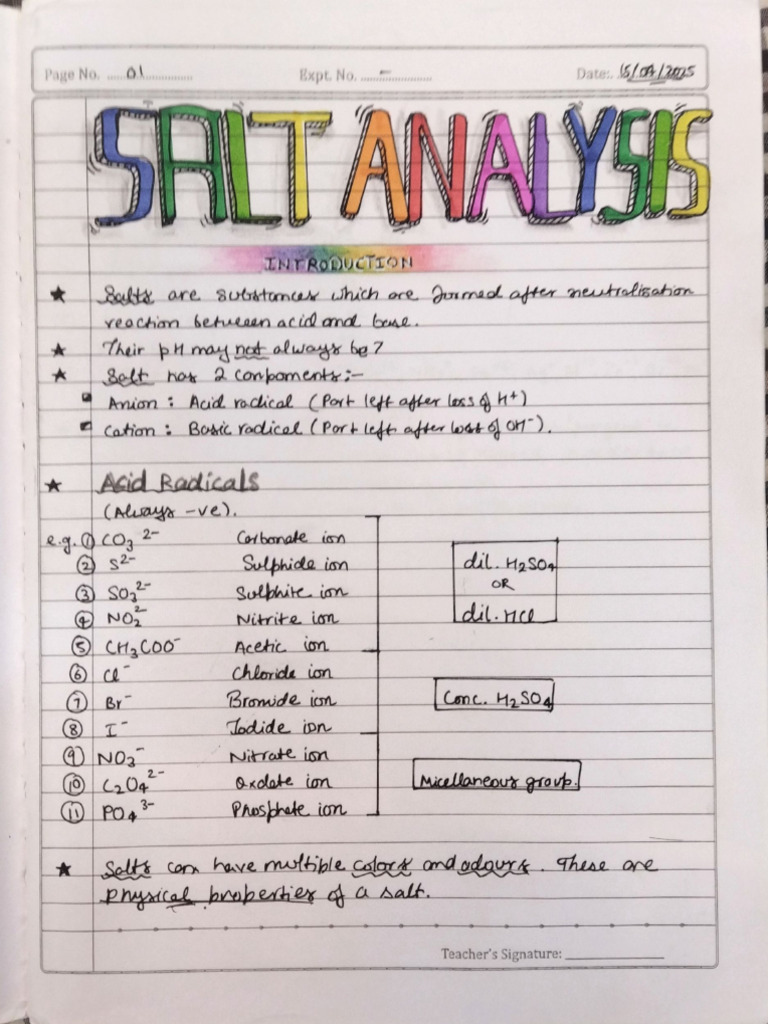 Page No. 01
Expt. No. –
Date: 15/07/2025
SALT ANALYSIS
INTRODUCTION
★ Salts are substances which are formed after neutralisation
reaction between acid and base.
★ Their pH may not always be 7
★ Salt has 2 components:-
Anion : Acid radical (Part left after loss of H⁺)
Cation : Basic radical (Part left after lost of OH⁻).
★ Acid Radicals
(Always -ve).
e.g. ① CO₃²⁻ Carbonate ion
② S²⁻ Sulphide ion
③ SO₃²⁻ Sulphite ion
④ NO₂²⁻ Nitrite ion
⑤ CH₃COO⁻ Acetic ion
dil. H₂SO₄
OR
dil. HCl
⑥ Cl⁻ Chloride ion
⑦ Br⁻ Bromide ion
⑧ I⁻ Iodide ion
Conc. H₂SO₄
⑨ NO₃⁻ Nitrate ion
⑩ C₂O₄²⁻ Oxdate ion
⑪ PO₄³⁻ Phosphate ion
Micellaneous group.
★ Salts can have multiple colors and odours. These are
physical properties of a salt.
Teacher's Signature: